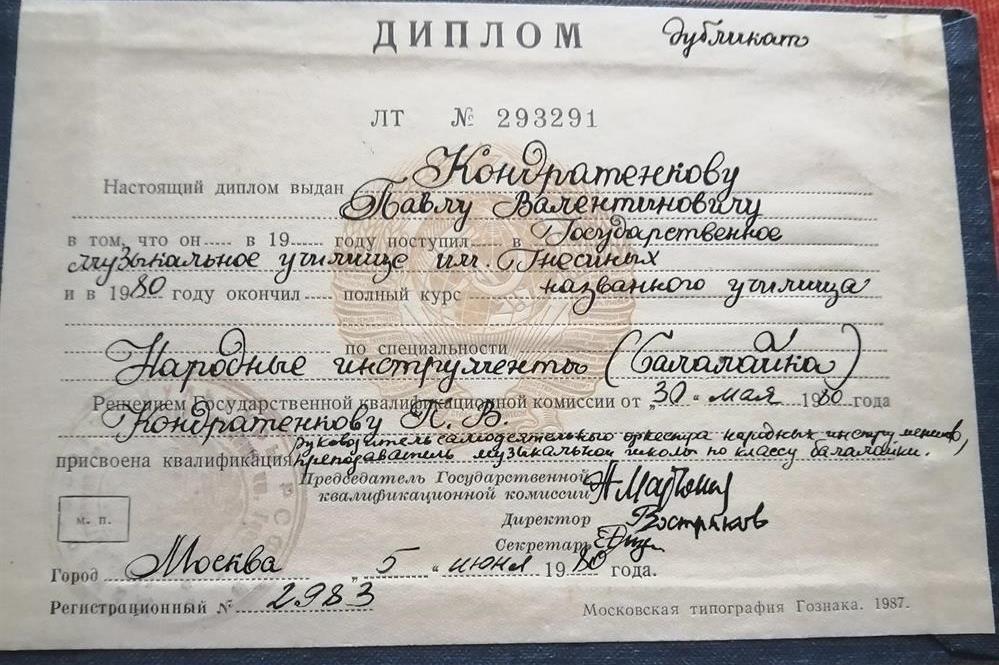 ДИПЛОМ дубликат
ЛТ № 293291
Настоящий диплом выдан Кондратенкову
Павлу Валентиновичу
в том, что он в 19 году поступил в Государственное
музыкальное училище им. Гнесиных
и в 1980 году окончил полный курс названного училища
по специальности
Народные инструменты (балалайка)
Решением Государственной квалификационной комиссии от „30“ мая 1980 года
Кондратенкову П. В.
присвоена квалификация руководитель самодеятельного оркестра народных инструментов,
преподаватель музыкальной школы по классу балалайки.
Председатель Государственной
квалификационной комиссии
Директор Востряков
Секретарь
м. п.
Город Москва „5“ июня 1980 года.
Регистрационный № 2983
Московская типография Гознака. 1987.